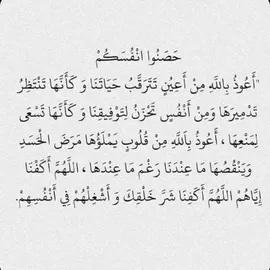 حَصِّنُوا انْفُسَكُمْ
"أَعُوذُ بِاللَّهِ مِنْ أَعْيُنٍ تَتَرَقَّبُ حَيَاتَنَا وَ كَأَنَّهَا تَنْتَظِرُ
تَدْمِيرَهَا وَمِنْ أَنْفُسٍ تَحْزَنُ لِتَوْفِيقِنَا وَ كَأَنَّهَا تَسْعَى
لِمَنْعِهَا ، أَعُوذُ بِاَللَّهِ مِنْ قُلُوبٍ يَمْلَؤُهَا مَرَضَ الْحَسَدِ
وَيَنْقُصُهَا مَا عِنْدَنَا رَغْمَ مَا عِنْدَهَا ، اللَّهُمَّ أَكْفْنَا
إِيَّاهُمْ اللَّهُمَّ أَكْفِنَا شَرَّ خَلْقِكَ وَ أَشْغِلْهُمْ فِي أَنْفُسِهِمْ.